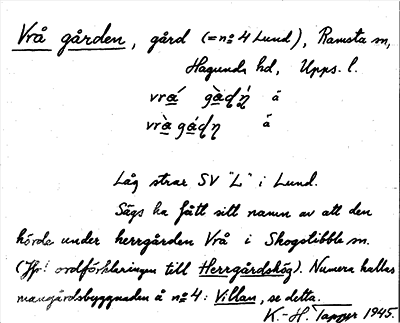 Vrå gården, gård (= nº 4 Lund), Ramsta sn,
Hagunda hd, Upps. l.
Låg strax SV "L" i Lund.
Sägs ha fått sitt namn av att den
hörde under herrgården Vrå i Skogstibble sn.
(Jfr! ordförklaringen till Herrgårdshög). Numera kallas
mangårdsbyggnaden å nº 4: Villan, se detta.
K.-H. Tapper 1945.